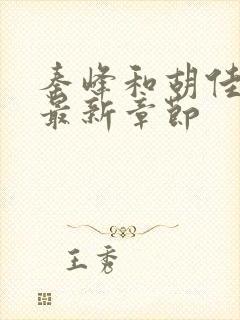 秦峰和胡佳
最新章节
王秀